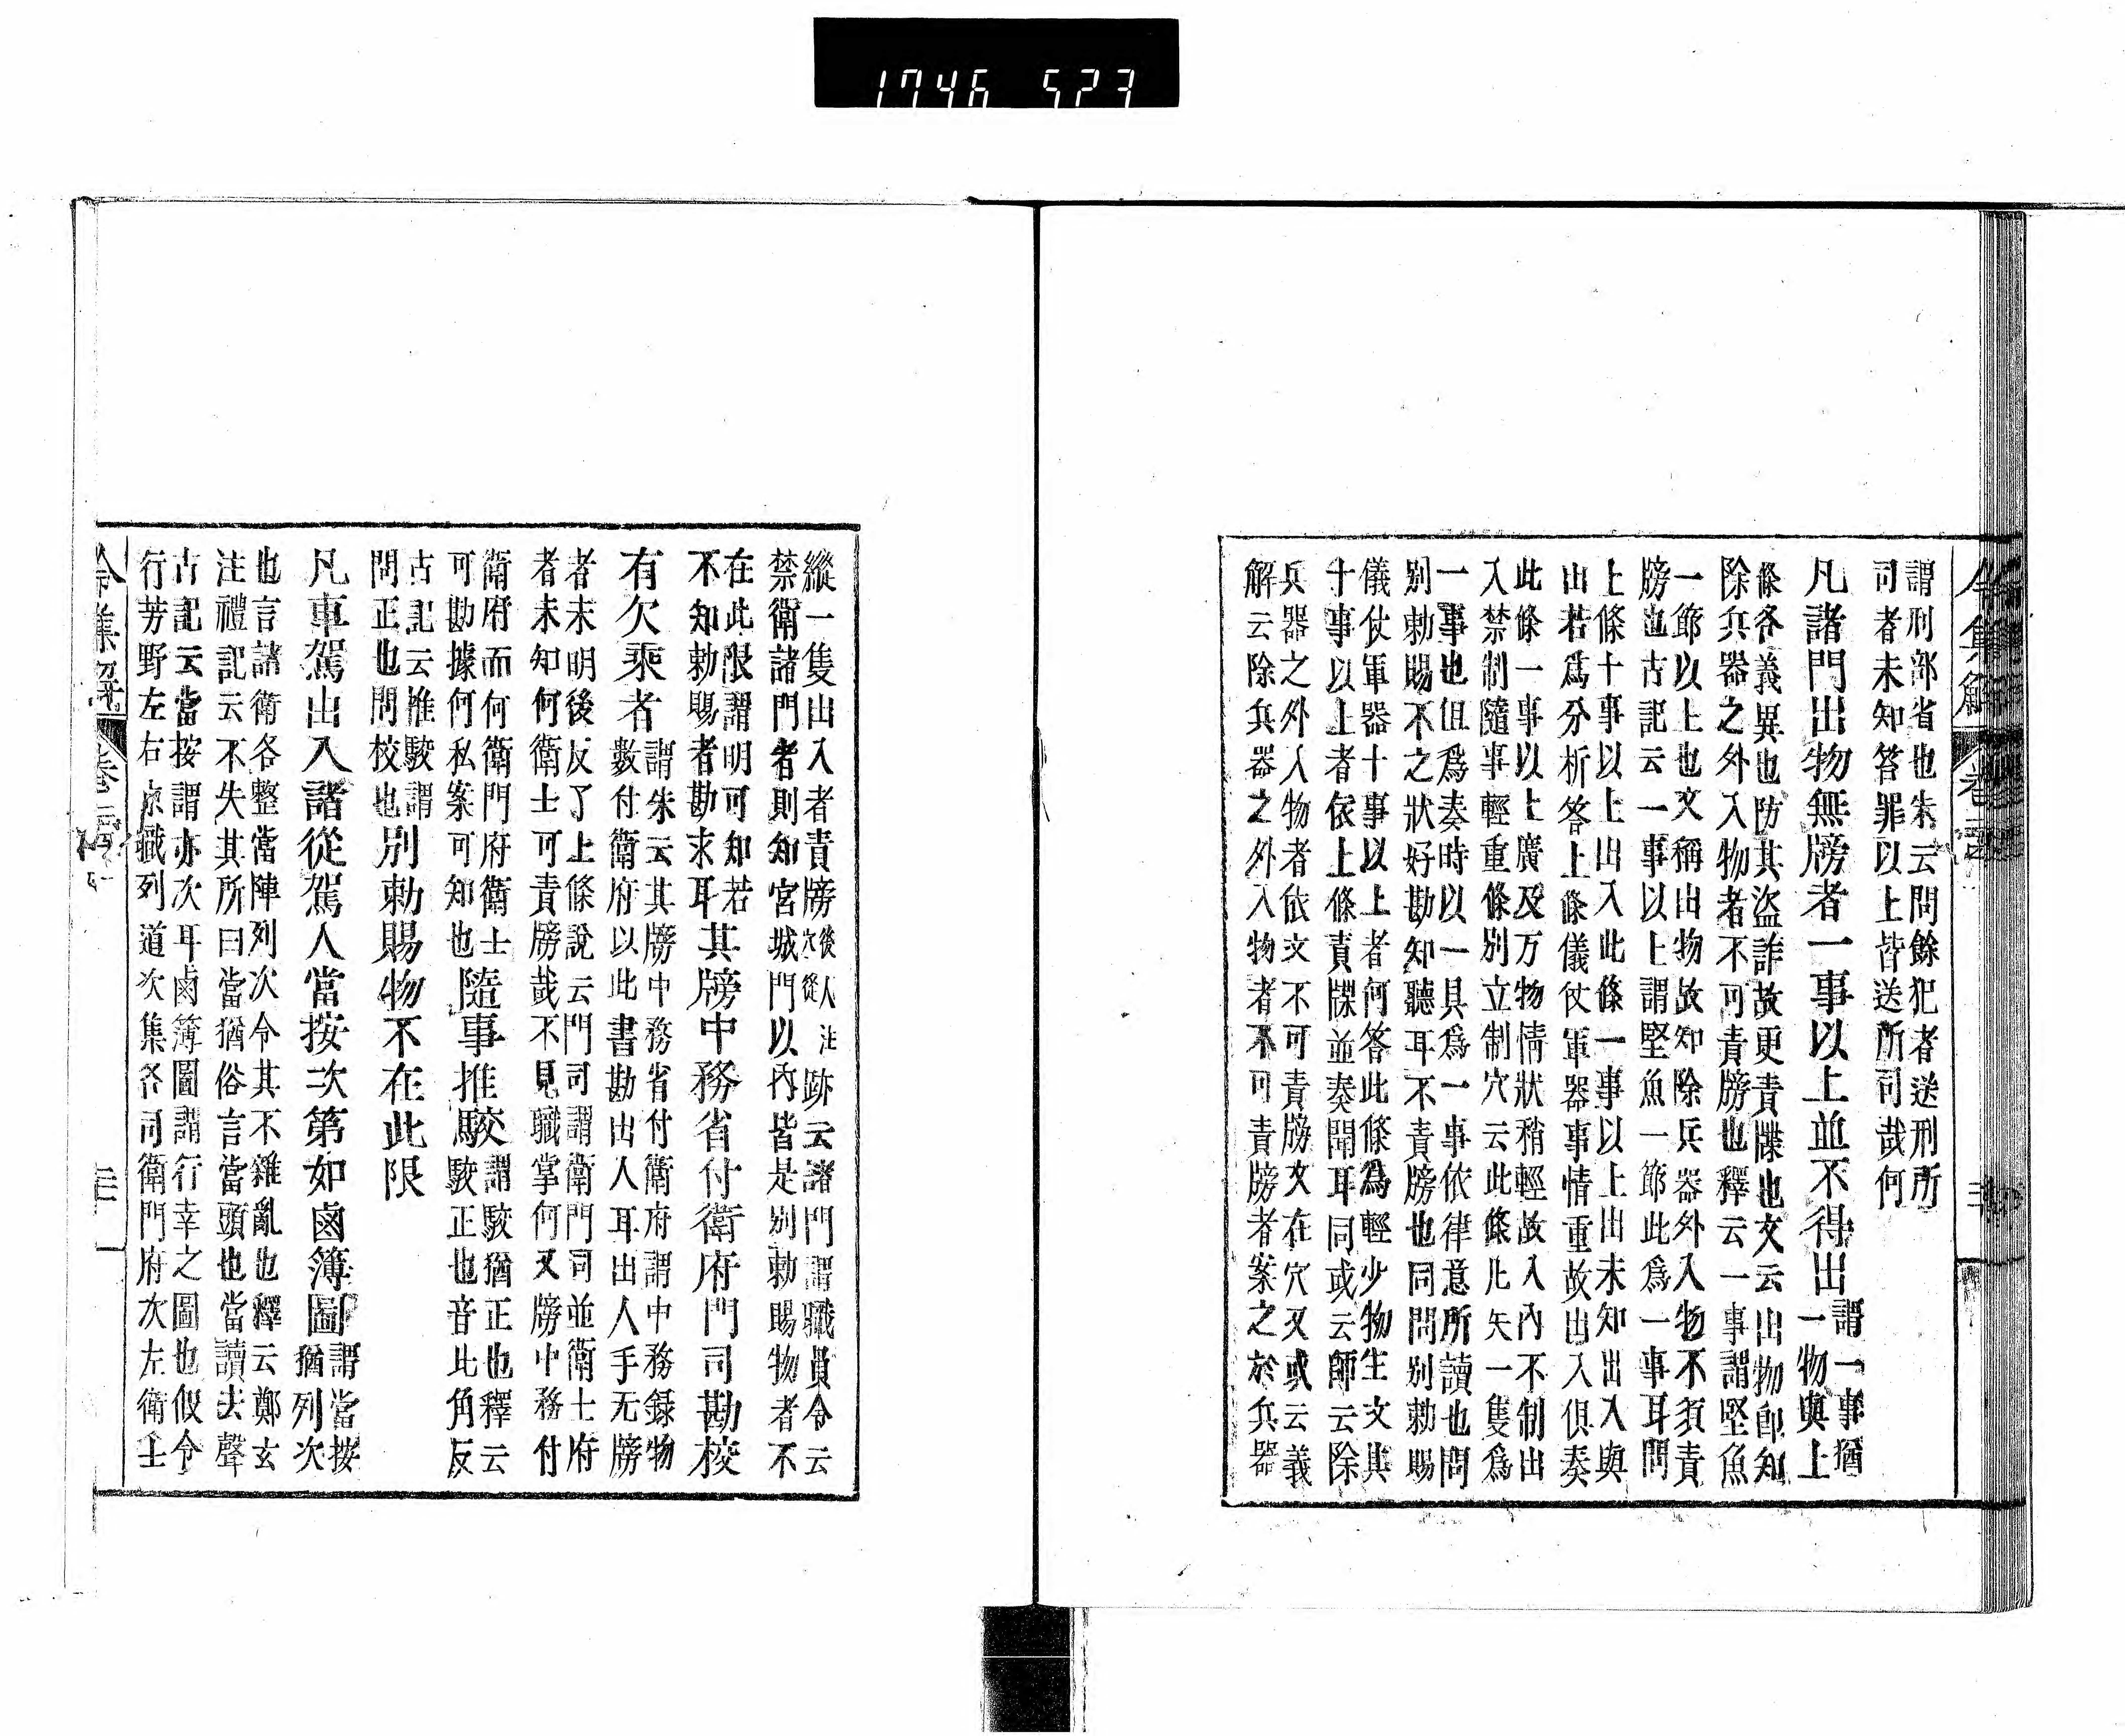 1746 523
謂刑部省也朱云問餘犯者送刑所
司者未知答罪以上皆送所司哉何
凡諸門出物無牓者一事以上並不得出
謂一事猶
一物與上
條各義異也防其盜詐故更責牒也文云出物卽知
除兵器之外入物者不可責牓也釋云一事謂堅魚
一節以上也文稱出物故知除兵器外入物不須責
牓也古記云一事以上謂堅魚一節此爲一事耳問
上條十事以上出入此條一事以上出未知出入與
出若爲分析答上條儀仗軍器事情重故出入俱奏
此條一事以上廣及万物情狀稍輕故入內不制出
入禁制隨事輕重條別立制穴云此條此矢一隻爲
一事也但爲奏時以一具爲一事依律意所讀也問
別勅賜不之狀好勘知聽耳不責牓也同問別勅賜
儀仗軍器十事以上者何答此條爲輕少物生文其
十事以上者依上條責牒並奏聞耳同或云師云除
兵器之外入物者依文不可責牓文在穴又或云義
解云除兵器之外入物者不可責牓者案之於兵器
令集解 卷
縱一隻出入者責牓穴後從人注跡云諸門謂職員令云
禁衛諸門者則知宮城門以內皆是別勅賜物者不
在此限謂明可知若
不知勅賜者勘求耳
其牓中務省付衛府門司勘校
有欠乘者
謂朱云其牓中務省付衛府謂中務録物
數付衛府以此書勘出人耳出人手无牓
者未明後反了上條說云門司謂衛門司並衛士府
者未知何衛士可責牓哉不見職掌何又牓中務付
衛府而何衛門府衛士
可勘據何私案可知也
隨事推駮
謂駮猶正也釋云
駮正也音此角反
古記云推駮謂
問正也問校也
別勅賜物不在此限
凡車駕出入諸從駕人當按次第如鹵簿圖
謂當按
猶列次
也言諸衛各整當陣列次令其不雜亂也釋云鄭玄
注禮記云不失其所曰當猶俗言當頭也當讀去聲
古記云當按謂亦次耳鹵簿圖謂行幸之圖也假令
行芳野左右京職列道次集各司衛門府次左衛士
令集解 卷